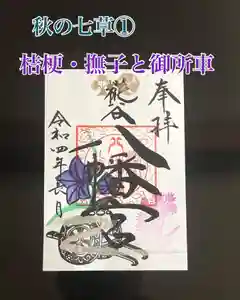 秋の七草①
桔梗・撫子と御所車
奉拝
熊谷
八幡宮
令和四年長月